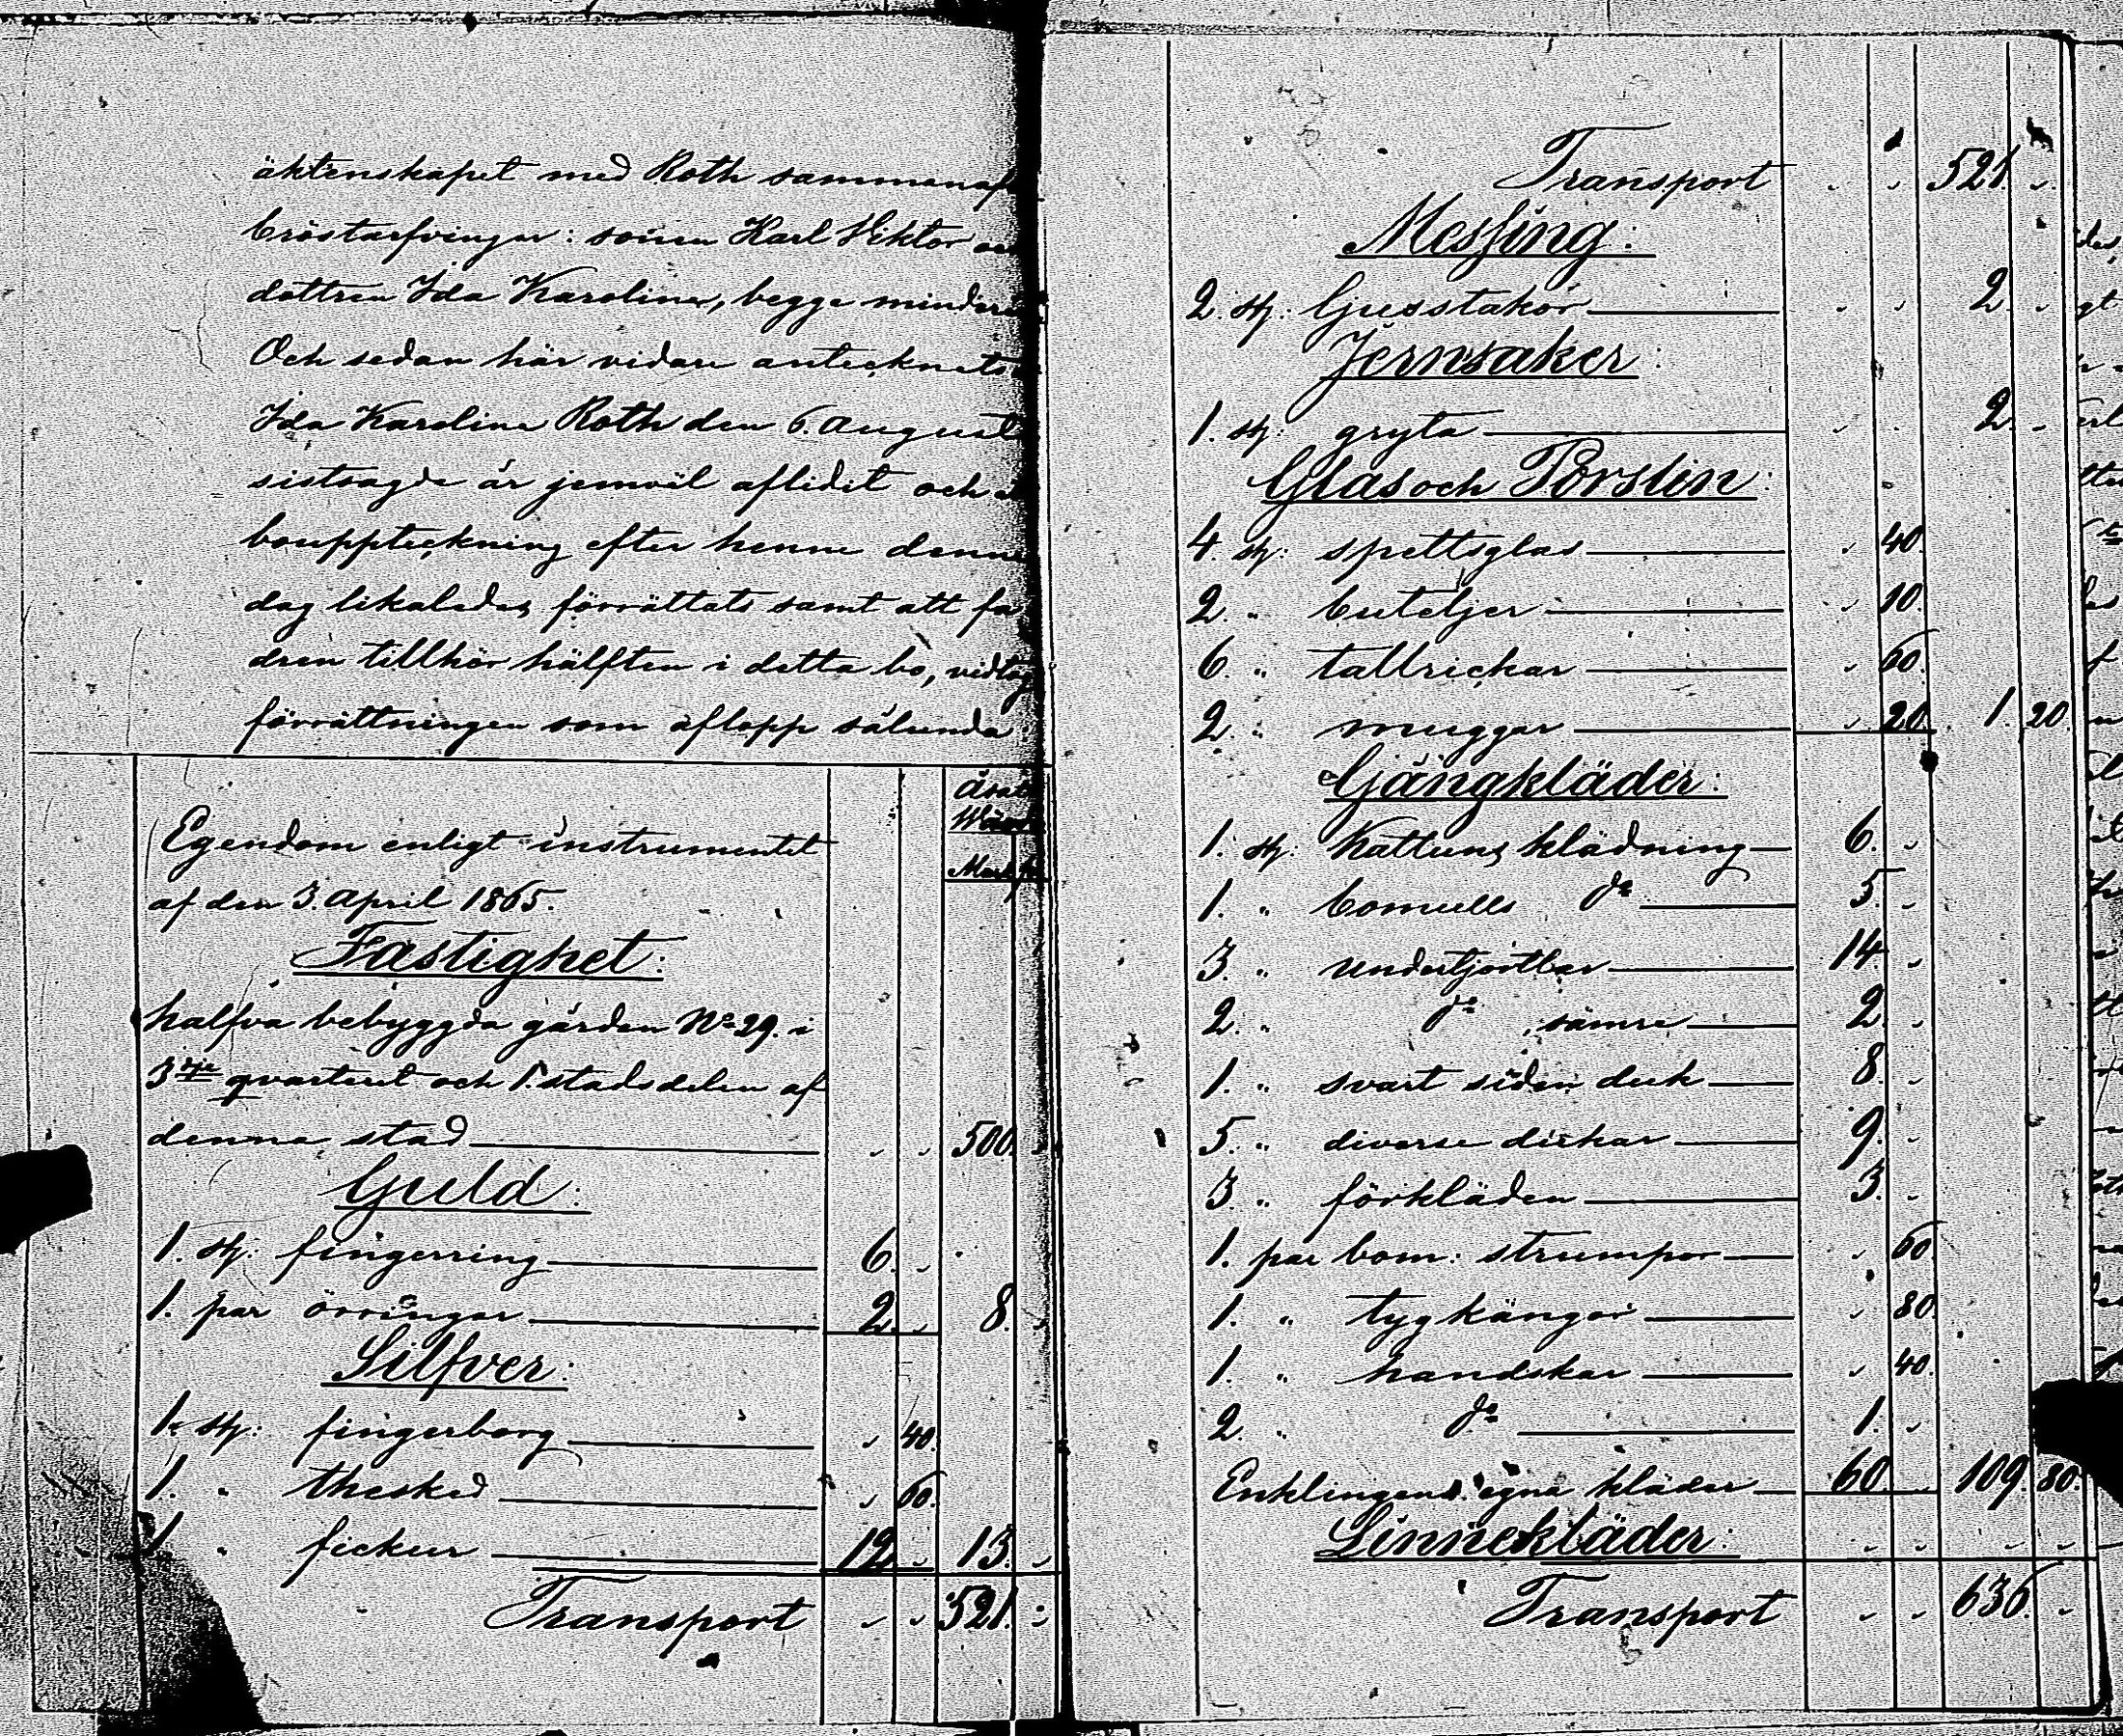 äktenskapet med Roth sammanaf
bröstarfvingar: sonen Karl Viktor
dottren Ida Karolina, begge minder
Och sedan här vidare antecknats
Ida Karolina Roth den 6. August
sistsagde år jemväl aflidit och
bouppteckning efter henne denna
dag likaledes förrättats samt att fa
dren tillhör hälften i detta bo, vidtog
förrättningen som aflopp sålunda
Egendom enligt instrumentet
af den 3. April 1865.
Fastighet:
halfva bebyggda gården No 29. i
3dje qvarteret och 1. stadsdelen af
denna stad 500.
Guld:
1. st: fingerring 6.
1. par örringar 2. 8.
Silfver:
1. st: fingerborg 40.
1. " thesked 60.
1 " fickur 12 13.
Transport 521.
Transport 521.
Messing:
2. st: ljusstakor 2
Jernsaker:
1. st: gryta 2.
Glas och Porslin:
4. st: spettsglas 40.
2. " buteljer 10.
6. " tallrickar 60.
2. " muggar 20. 1. 20.
Gångkläder:
1. st: Kattuns klädning 6.
1. " bomulls do 5.
3. " underkjortlar 14.
2. " do sämre 2.
1. " svart siden duk 8.
5. " diverse dukar 9.
3. " förkläden 3.
1. par bom: strumpor 60.
1. " tygkängor 80.
1. " handskar 40.
2. " do 1.
Enklingens egna kläder 60. 109. 80.
Linnekläder:
Transport 636.